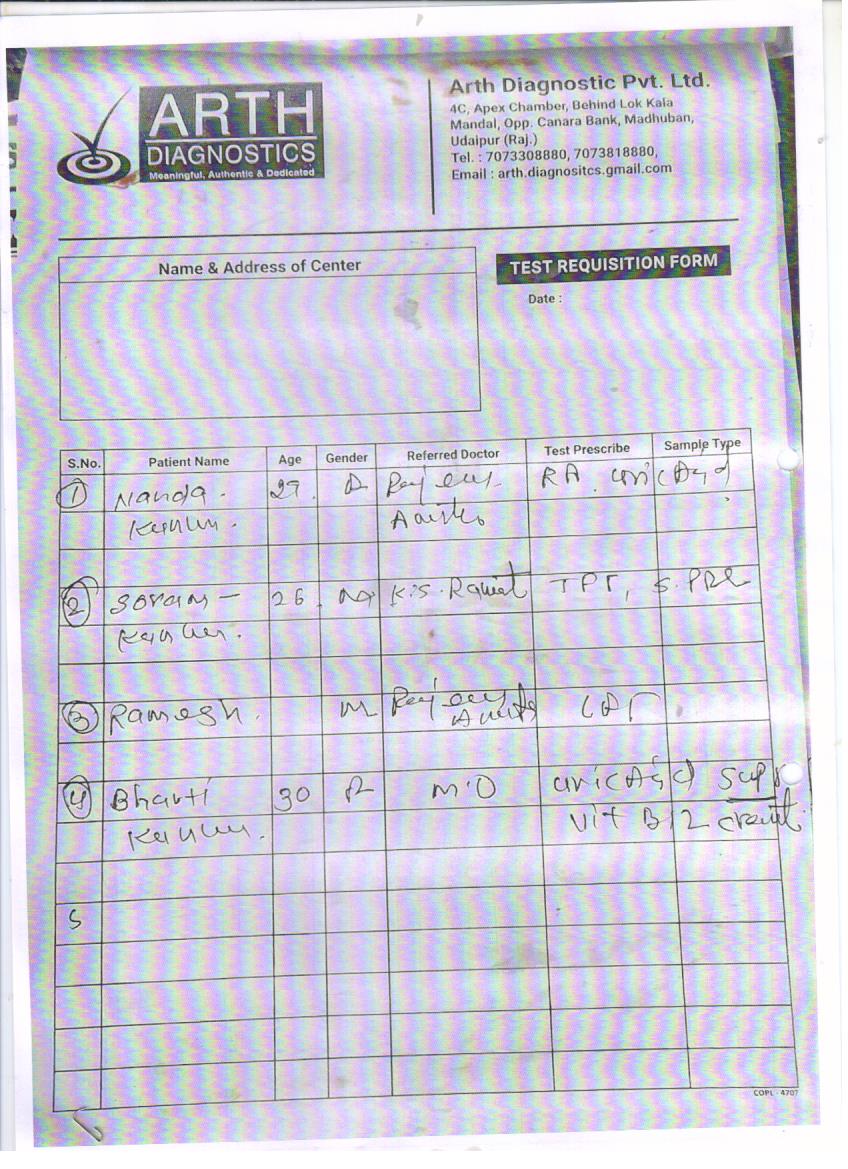 ARTH
DIAGNOSTICS
Meaningful, Authentic & Dedicated
Arth Diagnostic Pvt. Ltd.
4C, Apex Chamber, Behind Lok Kala
Mandal, Opp. Canara Bank, Madhuban,
Udaipur (Raj.)
Tel. : 7073308880, 7073818880,
Email : arth.diagnositcs.gmail.com
Name & Address of Center
TEST REQUISITION FORM
Date :
S.No. Patient Name Age Gender Referred Doctor Test Prescribe Sample Type
1 Nanda 27 RA uric Acid
2 26 K.S. Rawat S. PRL
3 Ramesh M
4 Bharti 30 M.O uric Acid
Vit B12
5
COPL - 4707